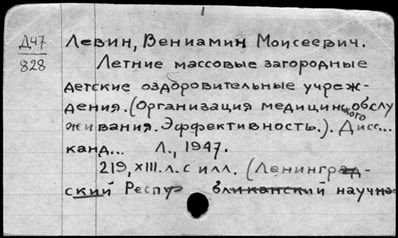 Д47
828
Левин, Вениамин Моисеевич.
Летние массовые загородные
детские оздоровительные учреж-
дения. (Организация медицинского обслу
живания. Эффективность.). Дисс...
канд... Л., 1947.
219, XIII л. с илл. (Ленинград-
ский Респу бликанский научно